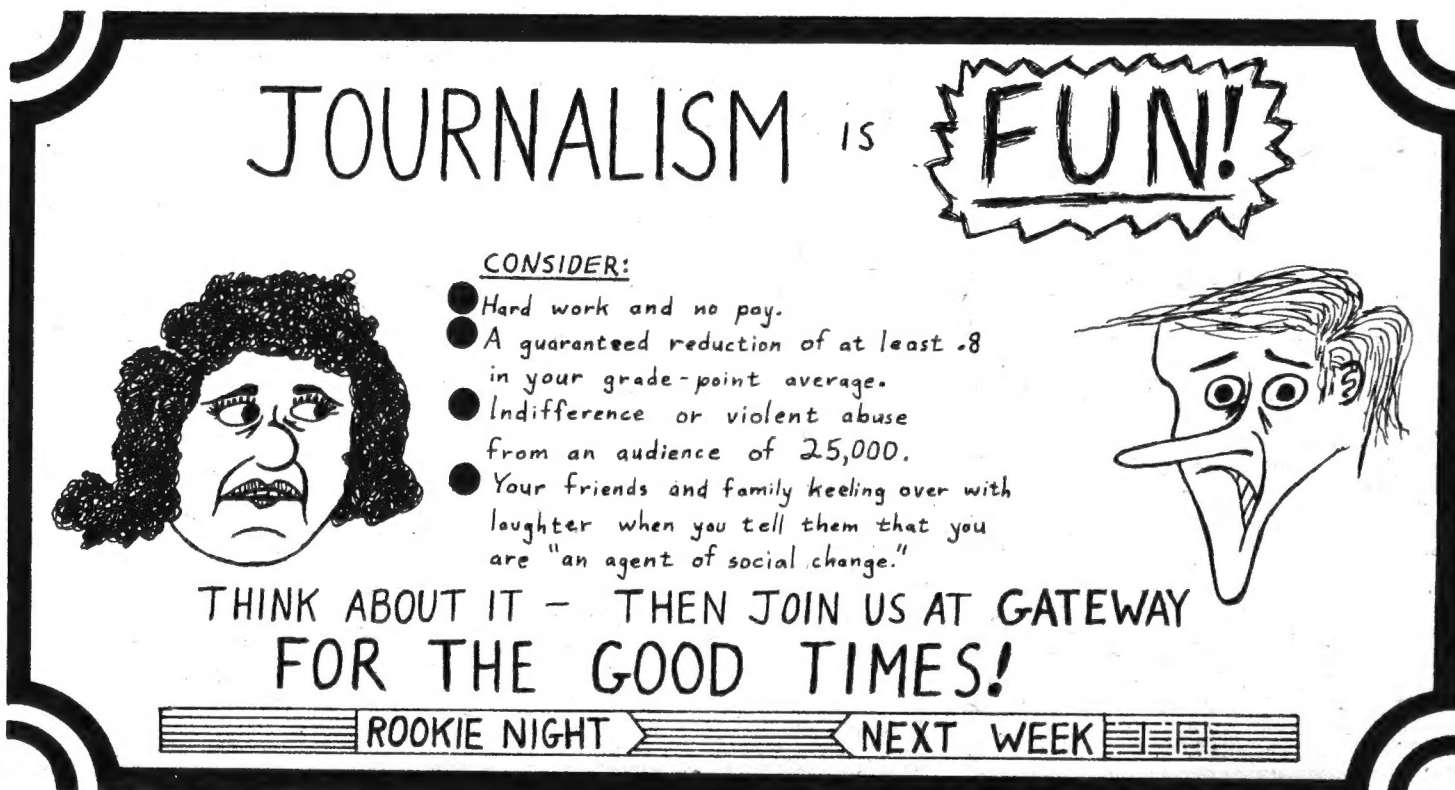 JOURNALISM IS FUN!
CONSIDER:
Hard work and no pay.
A guaranteed reduction of at least .8
in your grade-point average.
Indifference or violent abuse
from an audience of 25,000.
Your friends and family keeling over with
laughter when you tell them that you
are "an agent of social change."
THINK ABOUT IT - THEN JOIN US AT GATEWAY
FOR THE GOOD TIMES!
ROOKIE NIGHT NEXT WEEK